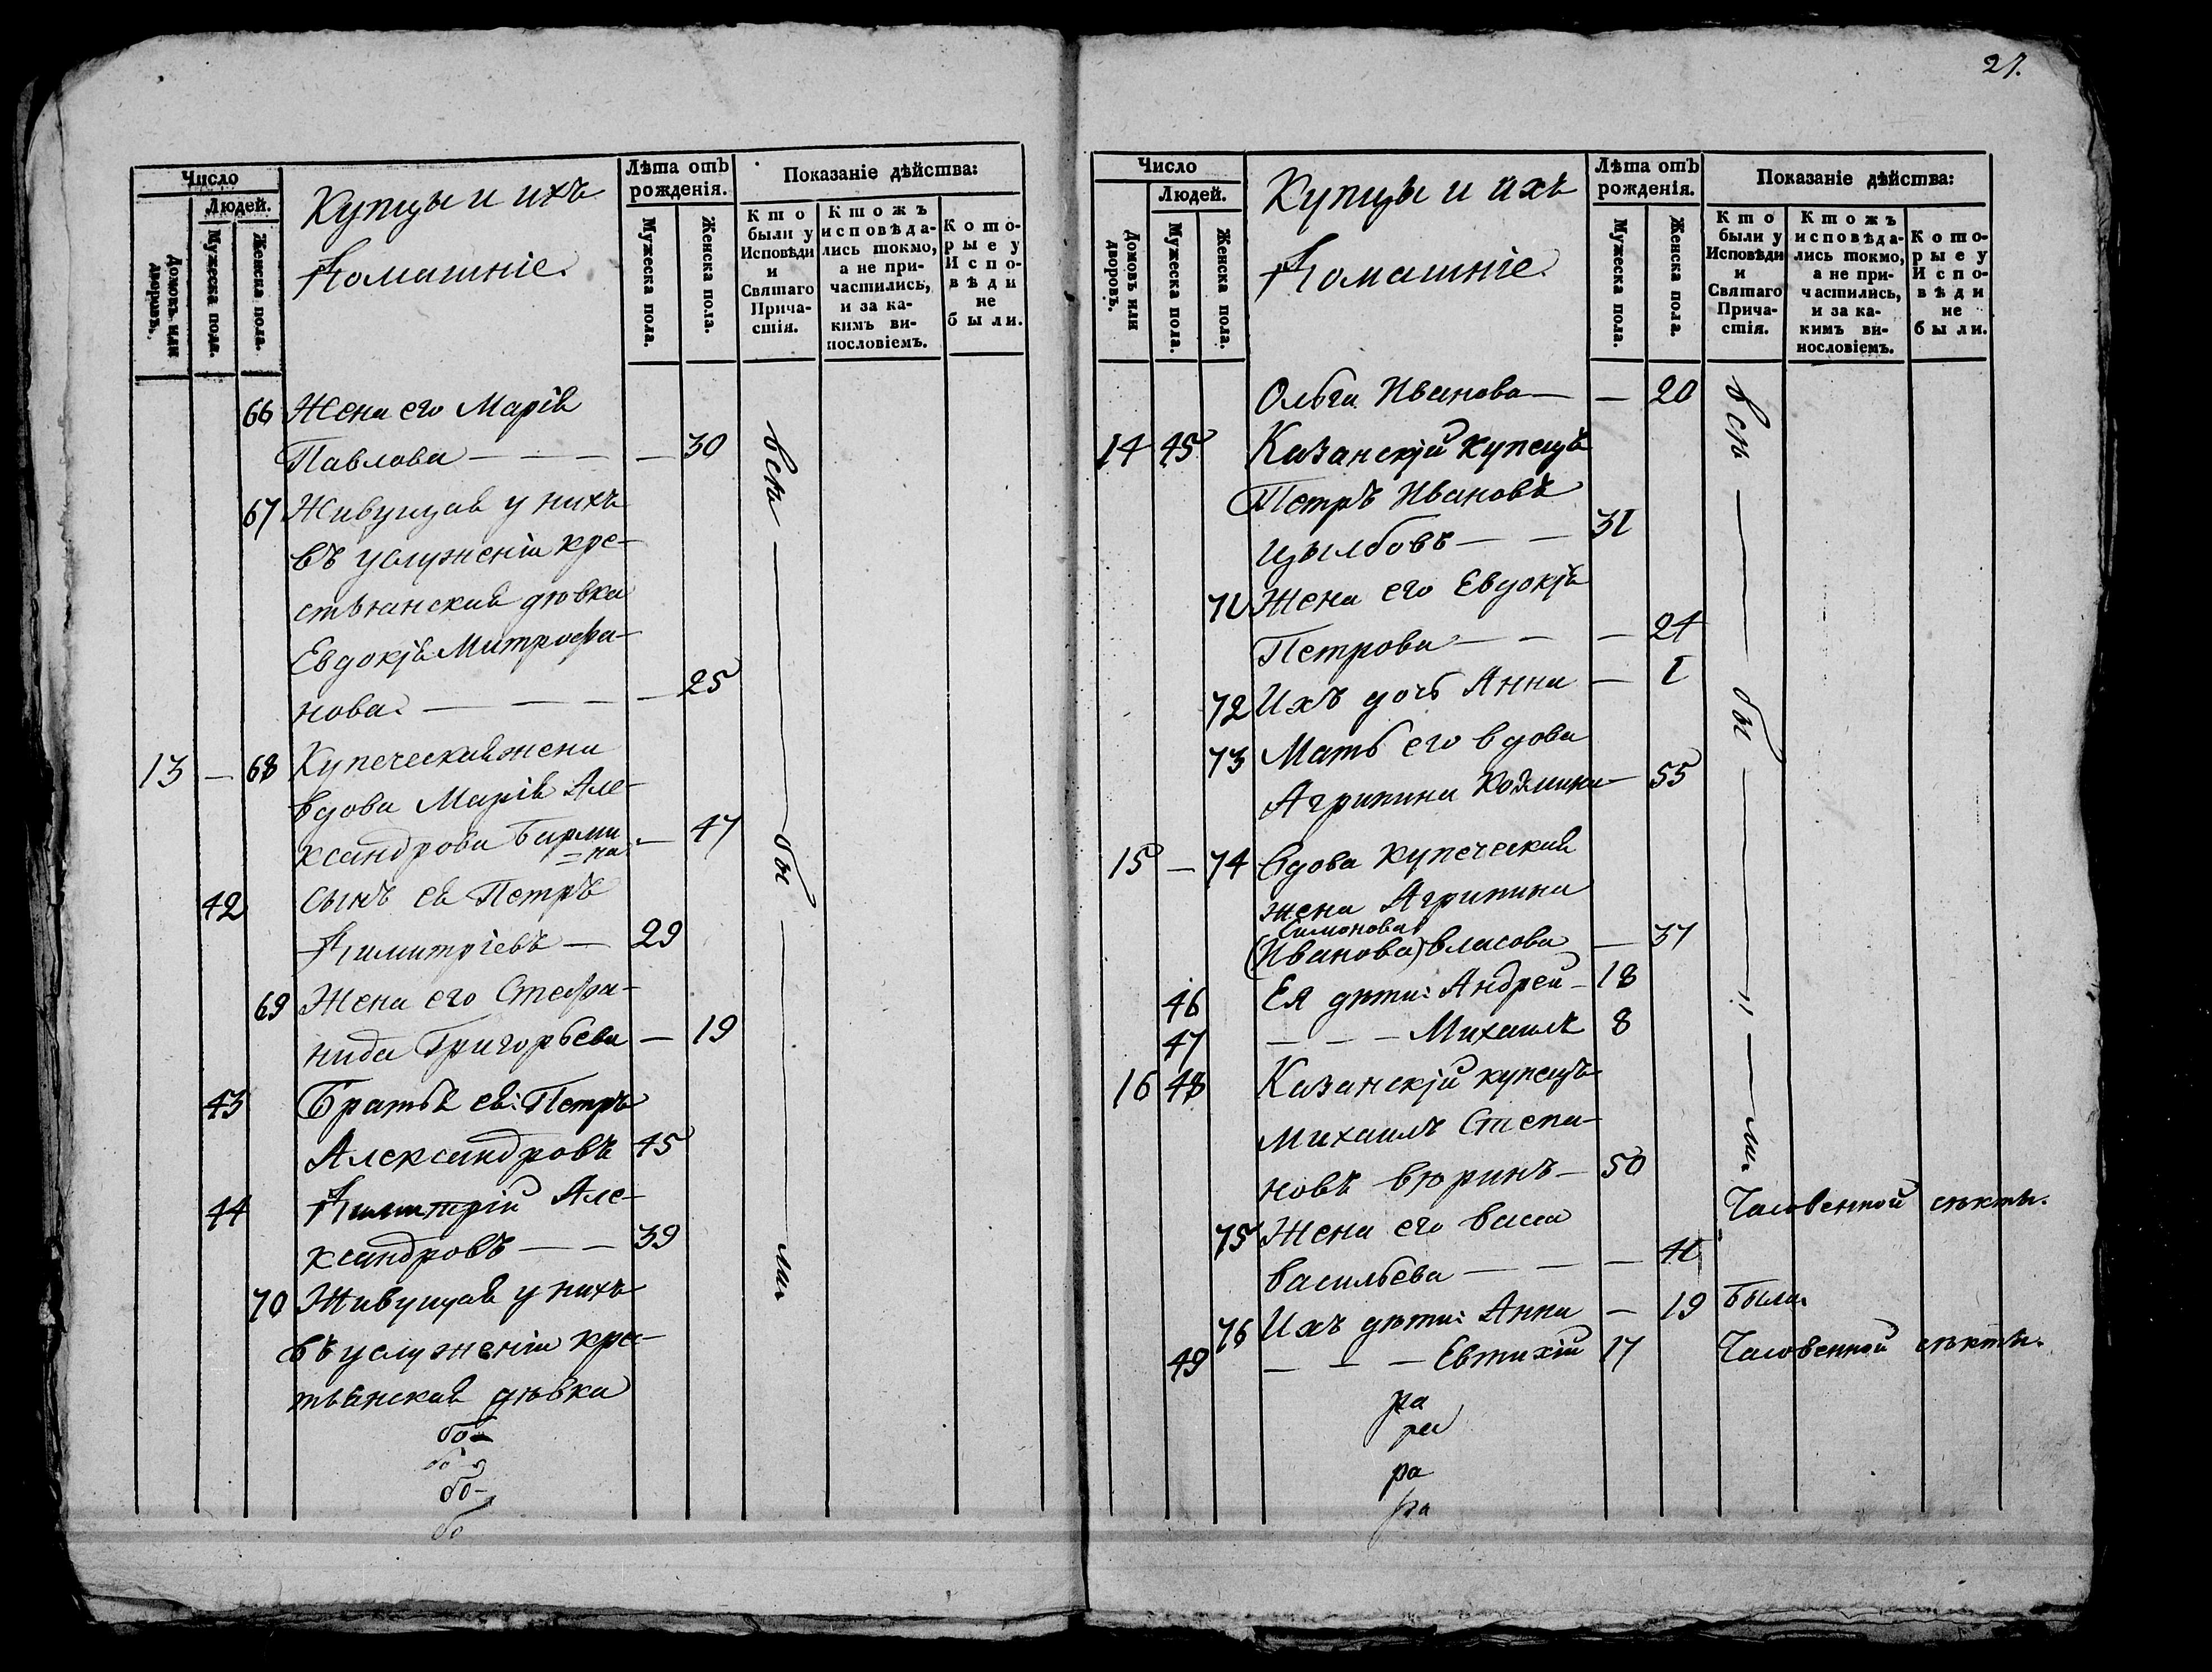 27.
Число
Людей.
Домовъ или дворовъ.
Мужеска пола.
Женска пола.
Купцы и ихъ
Домашніе.
Лѣта отъ
рожденія.
Мужеска пола.
Женска пола.
Показаніе дѣйства:
Кто
были у
Исповѣди
и
Святаго
Прича-
стія.
Ктожъ
исповѣда-
лись токмо,
а не при-
частились,
и за ка-
кимъ ви-
нословіемъ.
Кото-
рые у
Испо-
вѣди
не
были.
66 Жена его Марія
Павлова — — — — 30
67 Живущая у нихъ
въ услуженіи кре-
стьянская дѣвка
Евдокія Митрофа-
нова. — — — — 25
13 — 68 Купеческая жена
вдова Марія Але-
ксандрова Барми
=на. — 47
42 Сынъ ея Петръ
Димитріевъ — 29
69 Жена его Стефа-
нида Григорьева — 19
43 Братья ея: Петръ
Александровъ 45
44 Димитрій Але-
ксандровъ — — 39
70 Живущая у нихъ
въ услуженіи кре-
тьянская дѣвка
всѣ — бы — ли
бо-
бо
бо-
бо
Число
Людей.
Домовъ или дворовъ.
Мужеска пола.
Женска пола.
Купцы и ихъ
Домашніе.
Лѣта отъ
рожденія.
Мужеска пола.
Женска пола.
Показаніе дѣйства:
Кто
были у
Исповѣди
и
Святаго
Прича-
стія.
Ктожъ
исповѣда-
лись токмо,
а не при-
частились,
и за ка-
кимъ ви-
нословіемъ.
Кото-
рые у
Испо-
вѣди
не
были.
Ольга Иванова — — 20
14 45 Казанскій купецъ
Петръ Ивановъ
Цылбовъ — — 31
71 Жена его Евдокія
Петрова — — — 24
72 Ихъ дочь Анна — 1
73 Мать его вдова
Агрипина Козмина — 55
15 — 74 Вдова купеческая
жена Агрипина
Симонова
(Иванова) Власова — 37
46 Ея дѣти: Андрей — 18
47 — — — Михаилъ 8
16 48 Казанскій купецъ
Михаилъ Степа-
новъ Вюринъ — 50
75 Жена его Васса
Васильева — — —
76 Ихъ дѣти: Анна — 19 Была.
49 — — — Евтихій 17 Часовенной секты.
всѣ — бы — ли.
Часовенной секты.
ра
ра
ра
ра